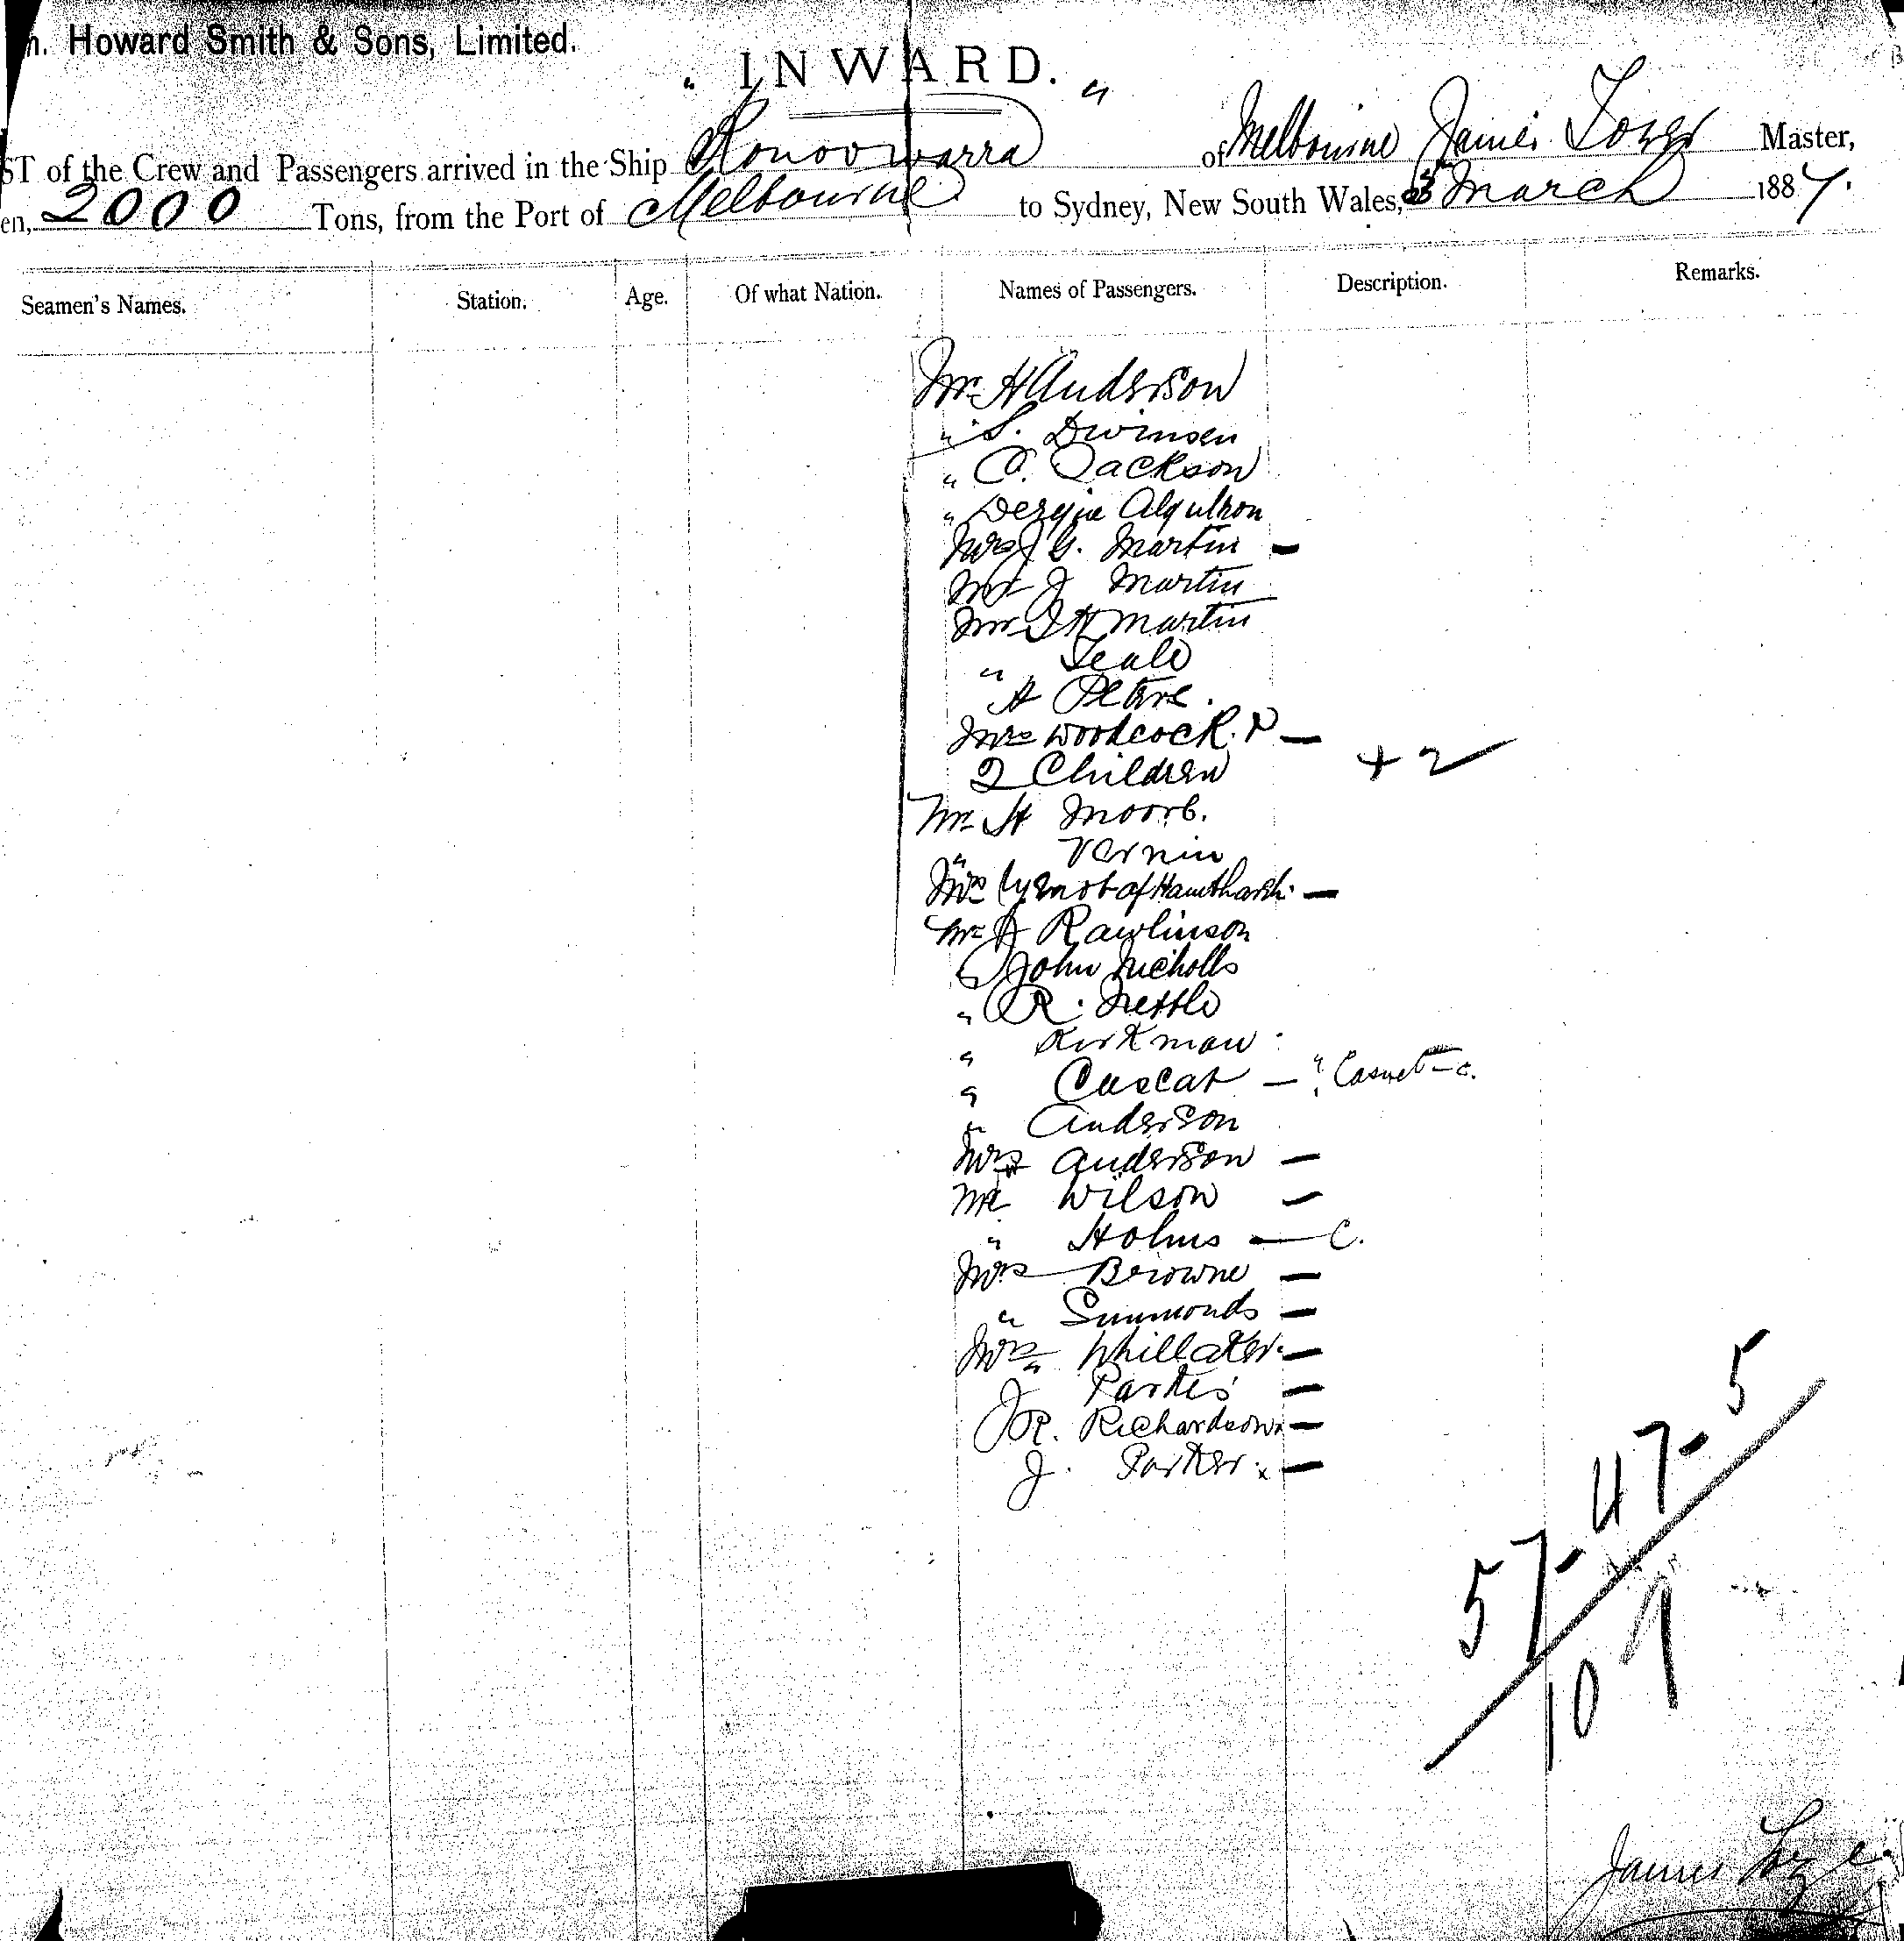 m. Howard Smith & Sons, Limited.
" INWARD. "
ST of the Crew and Passengers arrived in the Ship Konoowarra of Melbourne James Master,
en, 2000 Tons, from the Port of Melbourne to Sydney, New South Wales, March 1887.
Seamen's Names. Station. Age. Of what Nation. Names of Passengers. Description. Remarks.
Mr H Anderson
" S.
" C. Jackson
"
Mrs J G. Martin —
J Martin
Mr J H Martin
" Teale
A Peters.
Mrs Woodcock. P —
2 Children + 2
Mr H Moore.
" Vernin
Mrs of —
Mr A Rawlinson
John Nicholls
" R. Nettle
" Kirkman
" Cascat — "
" Anderson
Mrs Anderson —
Mr Wilson —
" Holms — C.
Mrs Browne —
" Simmonds —
Mrs Whillaker —
J " Parkes —
J R. Richardson —
J. Parker. x —
47 - 5
57 -
10 9
James